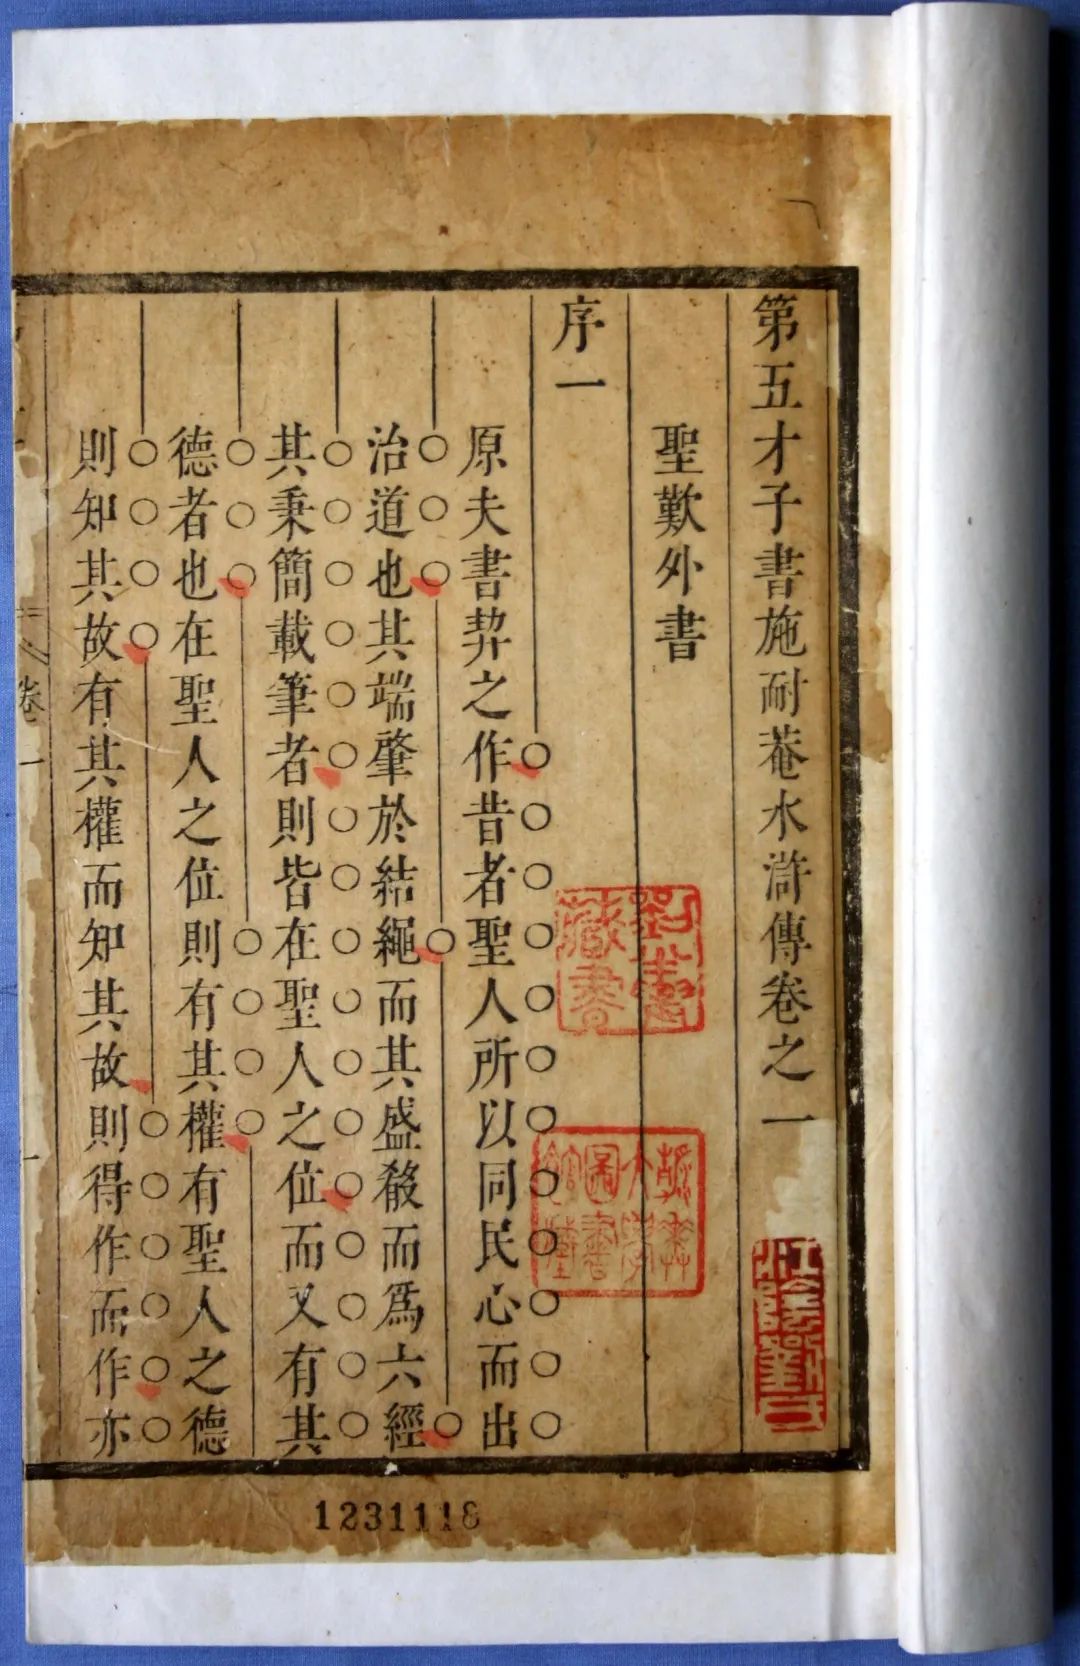 第五才子書施耐菴水滸傳卷之一
聖歎外書
序一
原夫書契之作昔者聖人所以同民心而出
治道也其端肇於結繩而其盛殽而爲六經
其秉簡載筆者則皆在聖人之位而又有其
德者也在聖人之位則有其權有聖人之德
則知其故有其權而知其故則得作而作亦
卷一
1231118